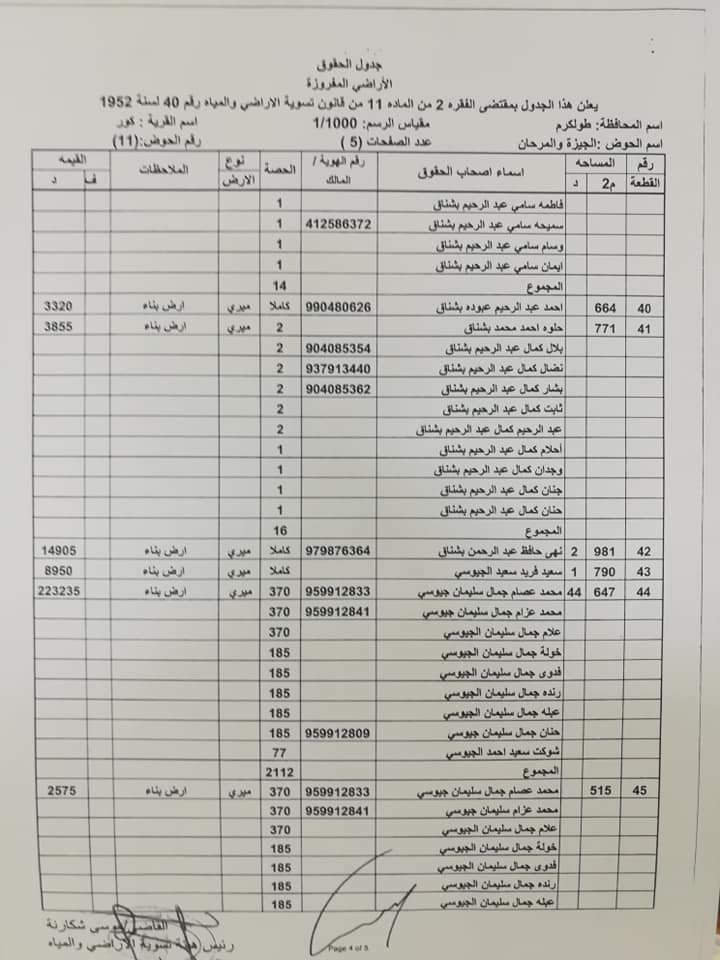 جدول الحقوق
الأراضي المفروزة
يعلن هذا الجدول بمقتضى الفقره 2 من الماده 11 من قانون تسوية الاراضي والمياه رقم 40 لسنة 1952
اسم المحافظة: طولكرم مقياس الرسم: 1/1000 اسم القرية : كور
اسم الحوض: الجيزة والمرحان عدد الصفحات ( 5 ) رقم الحوض:(11)
رقم القطعة المساحه م2 د اسماء اصحاب الحقوق رقم الهوية / المالك الحصة نوع الارض الملاحظات القيمه ف د
فاطمه سامي عبد الرحيم بشناق 1
سميحه سامي عبد الرحيم بشناق 412586372 1
وسام سامي عبد الرحيم بشناق 1
ايمان سامي عبد الرحيم بشناق 1
المجموع 14
40 664 احمد عبد الرحيم عبوده بشناق 990480626 كاملا ميري ارض بناء 3320
41 771 حلوه احمد محمد بشناق 2 ميري ارض بناء 3855
بلال كمال عبد الرحيم بشناق 904085354 2
نضال كمال عبد الرحيم بشناق 937913440 2
بشار كمال عبد الرحيم بشناق 904085362 2
ثابت كمال عبد الرحيم بشناق 2
عبد الرحيم كمال عبد الرحيم بشناق 2
أحلام كمال عبد الرحيم بشناق 1
وجدان كمال عبد الرحيم بشناق 1
جنان كمال عبد الرحيم بشناق 1
حنان كمال عبد الرحيم بشناق 1
المجموع 16
42 981 2 نهى حافظ عبد الرحمن بشناق 979876364 كاملا ميري ارض بناء 14905
43 790 1 سعيد فريد سعيد الجيوسي كاملا ميري ارض بناء 8950
44 647 44 محمد عصام جمال سليمان جيوسي 959912833 370 ميري ارض بناء 223235
محمد عزام جمال سليمان جيوسي 959912841 370
علام جمال سليمان الجيوسي 370
خولة جمال سليمان الجيوسي 185
فدوى جمال سليمان الجيوسي 185
رنده جمال سليمان الجيوسي 185
عبله جمال سليمان الجيوسي 185
حنان جمال سليمان جيوسي 959912809 185
شوكت سعيد احمد الجيوسي 77
المجموع 2112
45 515 محمد عصام جمال سليمان جيوسي 959912833 370 ميري ارض بناء 2575
محمد عزام جمال سليمان جيوسي 959912841 370
علام جمال سليمان الجيوسي 370
خولة جمال سليمان الجيوسي 185
فدوى جمال سليمان الجيوسي 185
رنده جمال سليمان الجيوسي 185
عبله جمال سليمان الجيوسي 185
القاضي موسى شكارنة
رئيس هيئة تسوية الاراضي والمياه
Page 4 of 5